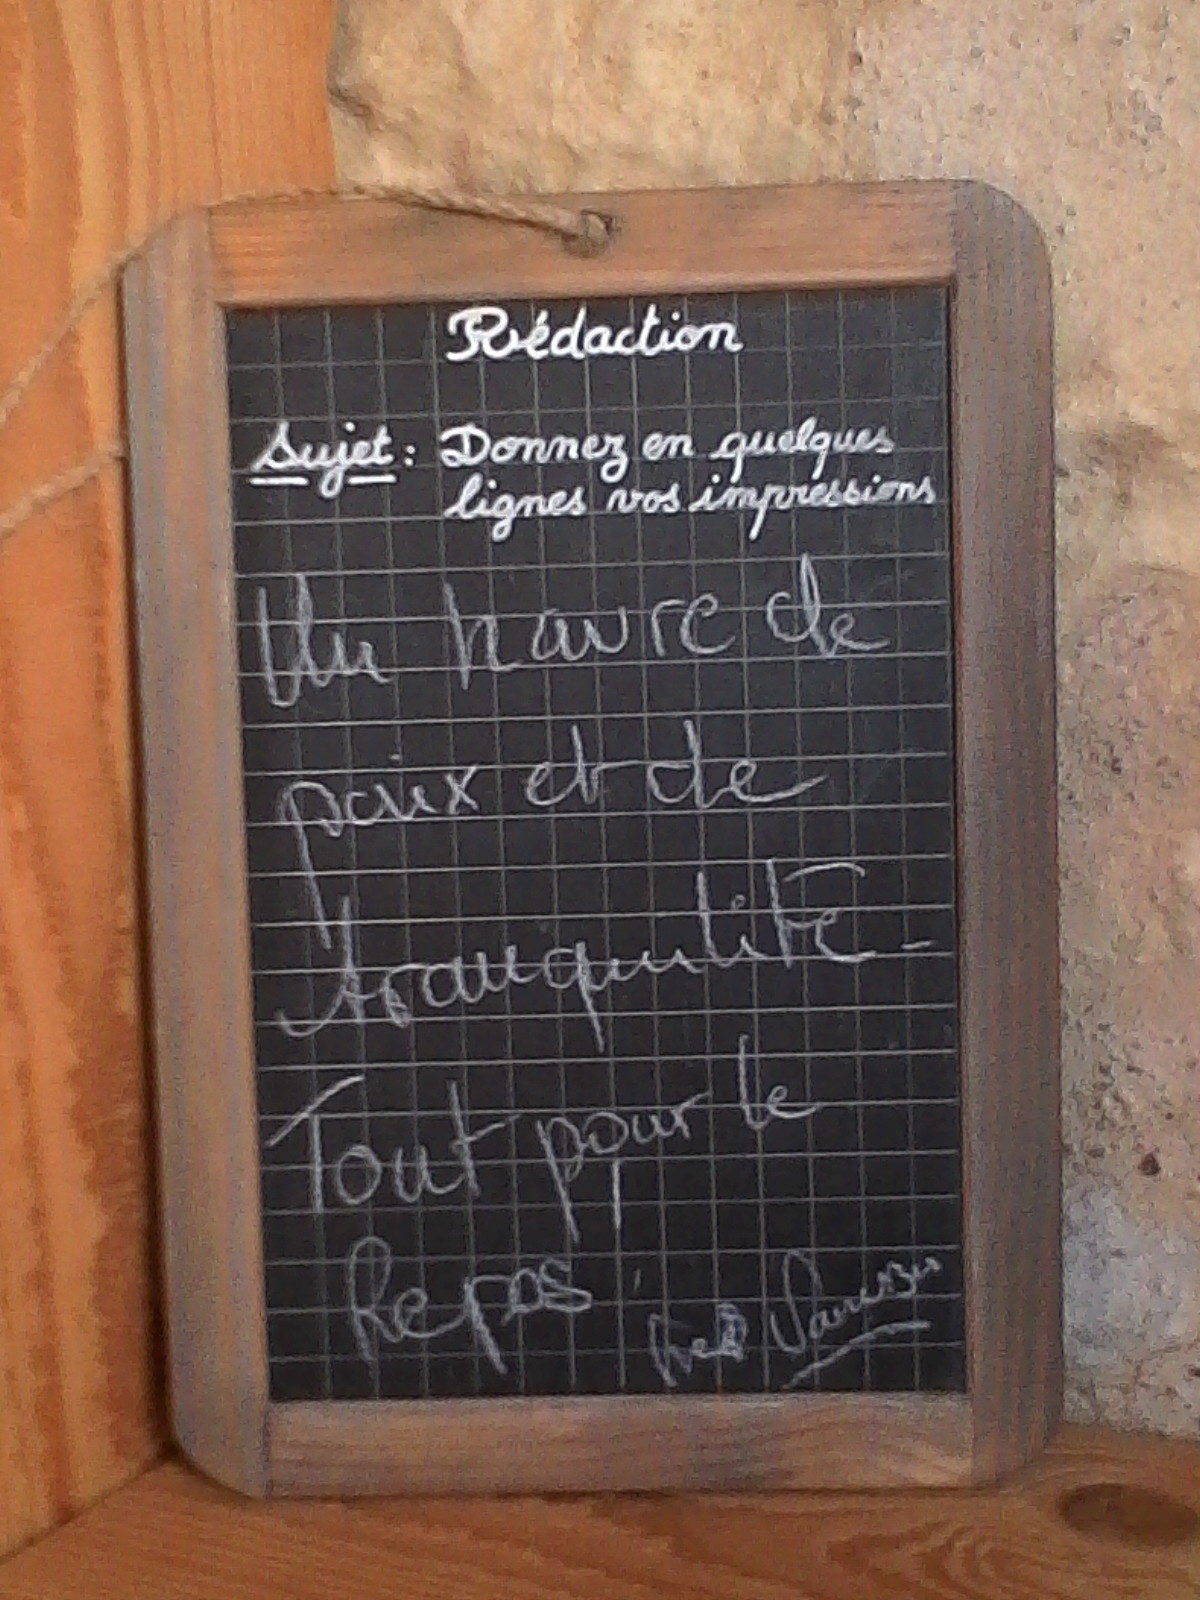 Rédaction
Sujet : Donnez en quelques
lignes vos impressions
Un havre de
paix et de
tranquilité -
Tout pour le
Repos